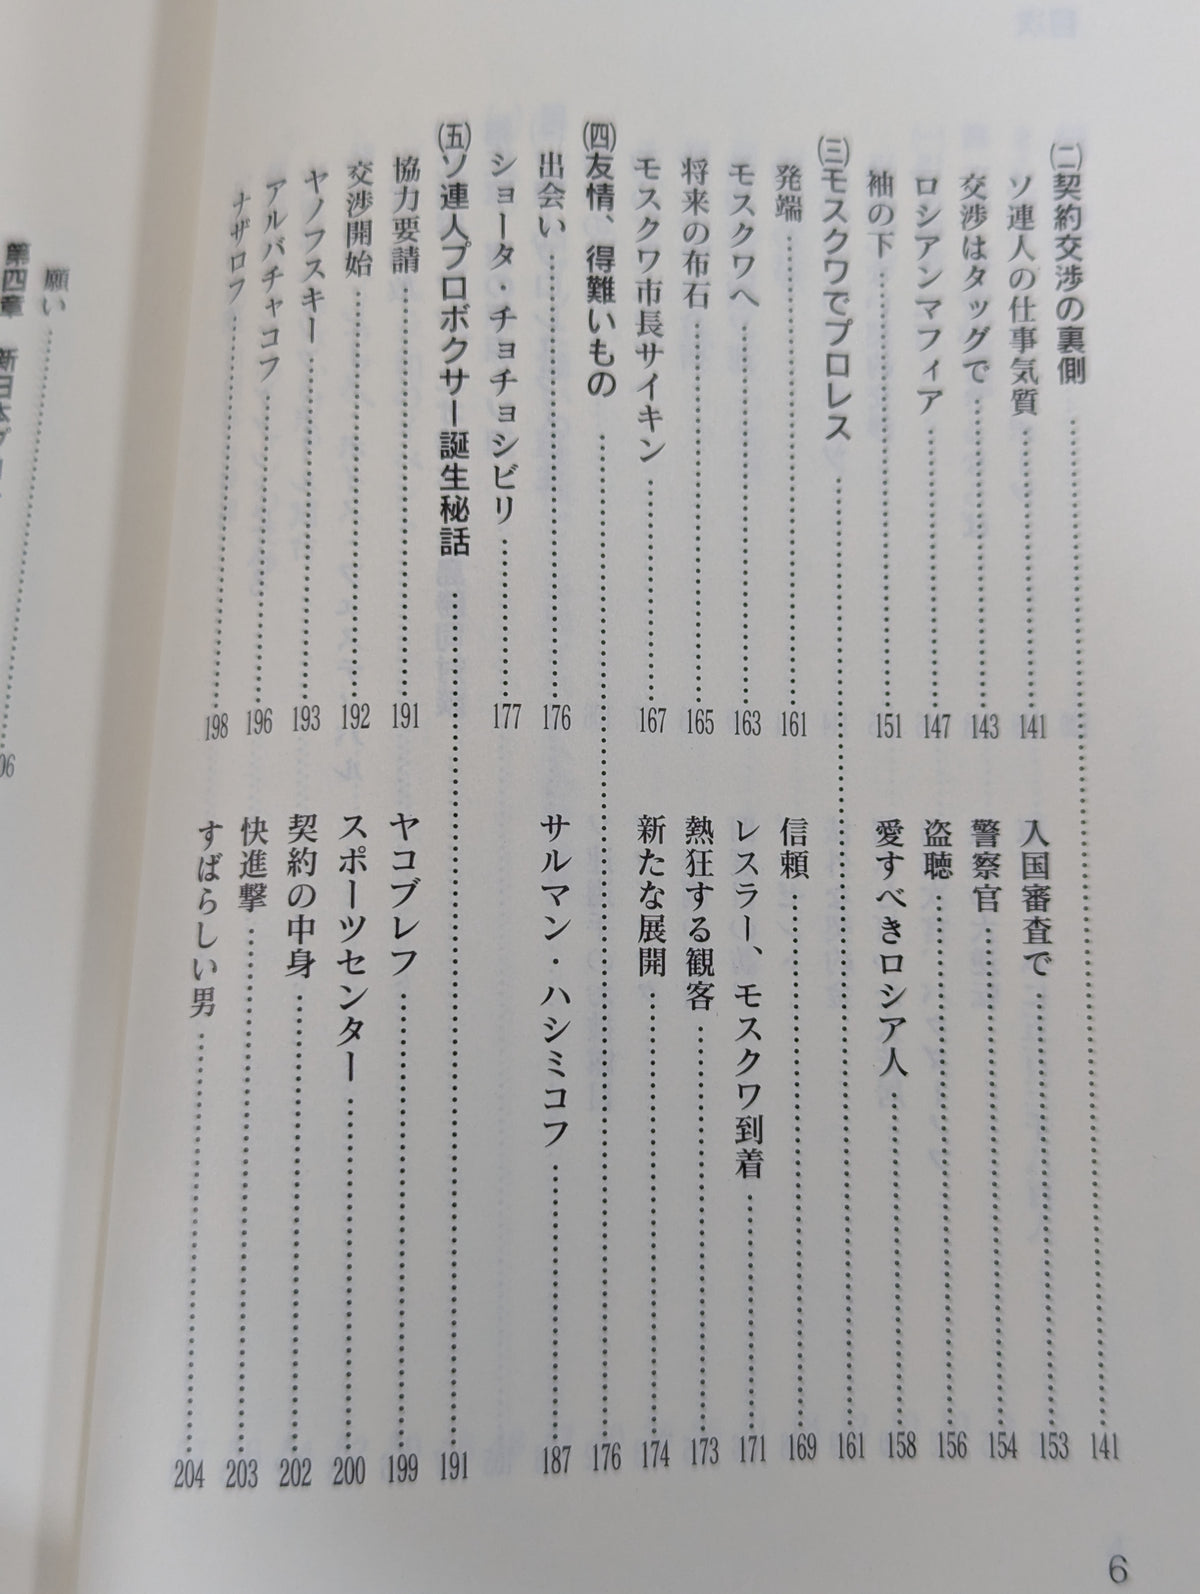 ㈡契約交渉の裏側……141
ソ連人の仕事気質……141
交渉はタッグで……143
ロシアンマフィア……147
袖の下……151
入国審査で……153
警察官……154
盗聴……156
愛すべきロシア人……158
㈢モスクワでプロレス……161
発端……161
モスクワへ……163
将来の布石……165
モスクワ市長サイキン……167
信頼……169
レスラー、モスクワ到着……171
熱狂する観客……173
新たな展開……174
㈣友情、得難いもの……176
出会い……176
ショータ・チョチョシビリ……177
サルマン・ハシミコフ……187
㈤ソ連人プロボクサー誕生秘話……191
協力要請……191
交渉開始……192
ヤノフスキー……193
アルバチャコフ……196
ナザロフ……198
ヤコブレフ……199
スポーツセンター……200
契約の中身……202
快進撃……203
すばらしい男……204
6
願い……06
第四章 新日本